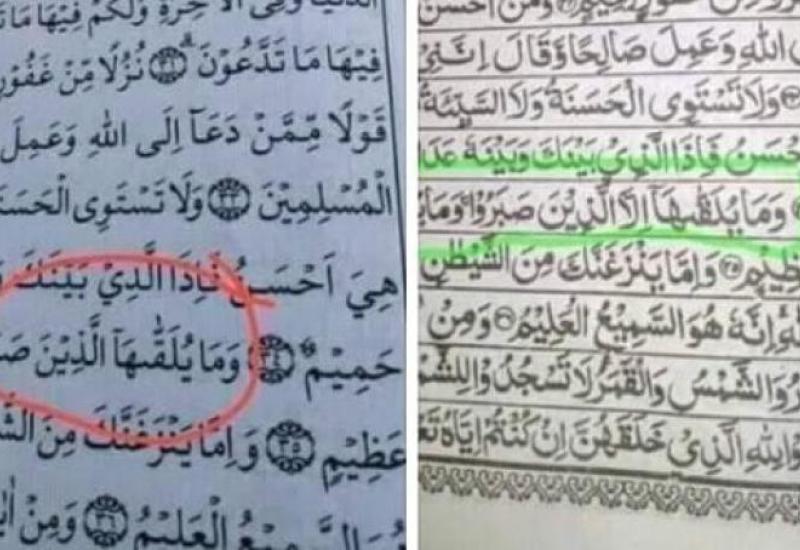 الدُّنْيَا وَفِى الْاٰخِرَةِ وَلَكُمْ فِيْهَا مَا
فِيْهَا مَا تَدَّعُوْنَ ۝٣١ نُزُلًا مِّنْ غَفُوْرٍ
قَوْلًا مِّمَّنْ دَعَآ اِلَى اللّٰهِ وَعَمِلَ
الْمُسْلِمِيْنَ ۝٣٣ وَلَا تَسْتَوِى الْحَسَنَ
هِيَ اَحْسَنُ فَاِذَا الَّذِيْ بَيْنَكَ
حَمِيْمٌ ۝٣٤ وَمَا يُلَقّٰىهَا الَّذِيْنَ صَ
عَظِيْمٍ ۝٣٥ وَاِمَّا يَنْزَغَنَّكَ مِنَ الشَّ
هُوَ السَّمِيْعُ الْعَلِيْمُ ۝٣٦ وَمِنْ اٰيٰ
وَمَنْ اَحْسَنُ
اللّٰهِ وَعَمِلَ صَالِحًا وَّقَالَ اِنَّنِيْ
وَلَا تَسْتَوِى الْحَسَنَةُ وَلَا السَّيِّئَةُ
اَحْسَنُ فَاِذَا الَّذِيْ بَيْنَكَ وَبَيْنَهٗ عَدَا
وَمَا يُلَقّٰىهَآ اِلَّا الَّذِيْنَ صَبَرُوْا وَمَا يُ
عَظِيْمٍ ۝٣٥ وَاِمَّا يَنْزَغَنَّكَ مِنَ الشَّيْطٰنِ
اِنَّهٗ هُوَ السَّمِيْعُ الْعَلِيْمُ ۝٣٦ وَمِنْ
وَالشَّمْسُ وَالْقَمَرُ لَا تَسْجُدُوْا لِلشَّمْ
لِلّٰهِ الَّذِيْ خَلَقَهُنَّ اِنْ كُنْتُمْ اِيَّاهُ تَعْ